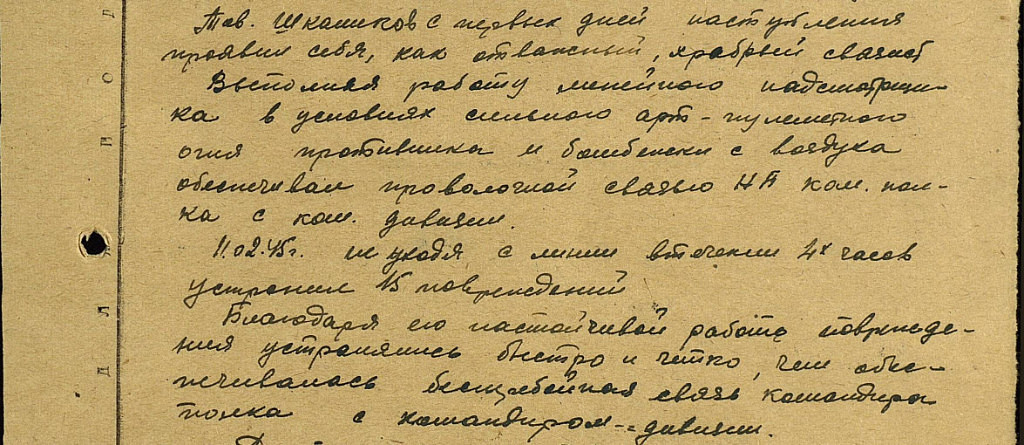 Тов. Шкаликов с первых дней наступления
проявил себя, как отважный, храбрый связист
Выполняя работу линейного надсмотрщи-
ка в условиях сильного арт-пулеметного
огня противника и бомбежки с воздуха
обеспечивал проволочной связью НП ком. пол-
ка с ком. дивизии.
11.02.45г. не уходя с линии втечении 4х часов
устранил 15 повреждений
Благодаря его настойчивой работе поврежде-
ния устранялись быстро и четко, чем обес-
печивалась бесперебойная связь командира
полка с командиром дивизии.
Д Л Я П О Д